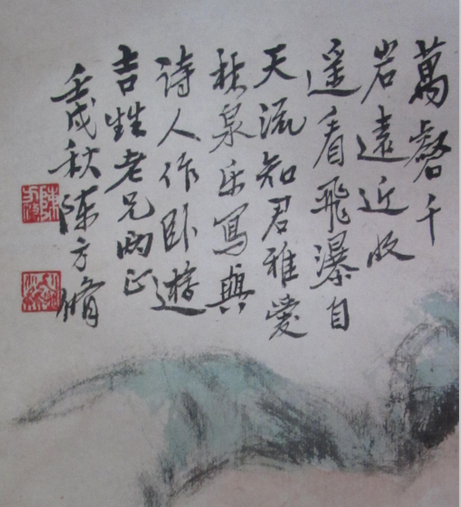 萬壑千
岩遠近收
遥看飛瀑自
天流知君雅愛
林泉乐寫與
诗人作卧遊
吉甡老兄两正
壬戌秋陈方脩